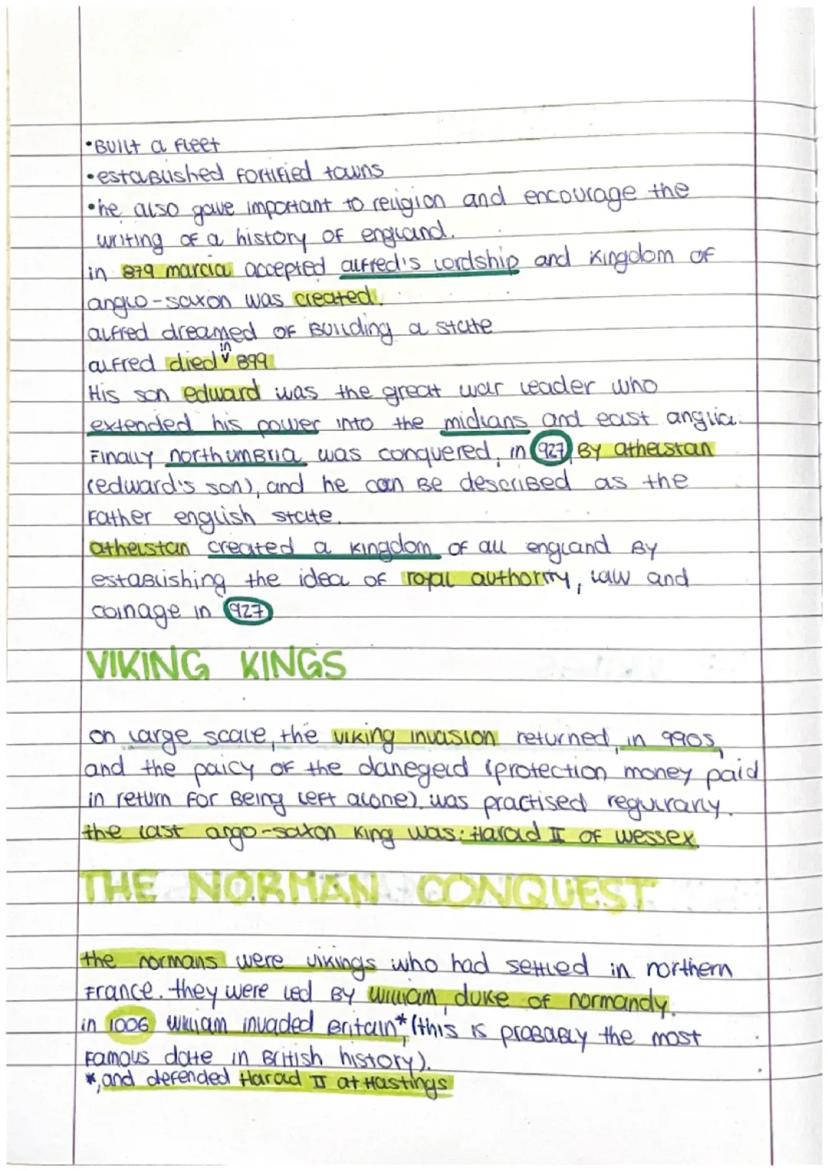 •Built a fleet
•established fortified towns
•he also gave important to religion and encourage the
writing of a history of england.
in 879 marcia accepted alfred's lordship and kingdom of
anglo-saxon was created.
alfred dreamed of building a state
alfred died in 899
His son edward was the great war leader who
extended his power into the midlans and east anglia.
Finally northumbria was conquered, in 927 By athelstan
(edward's son), and he can be described as the
Father english state.
athelstan created a kingdom of all england by
establishing the idea of royal authority, law and
coinage in 927
VIKING KINGS
on large scale, the viking invasion returned, in 990s,
and the paicy of the danegeld (protection money paid
in return for being left alone). was practised regurarly.
the last argo-saxon king was: Harald II of wessex.
THE NORMAN CONQUEST
the normans were vikings who had settled in northern
France. they were led by william, duke of normandy.
in 1006 william invaded Britain*, (this is probably the most
famous date in British history).
*, and defended Harald II at Hastings